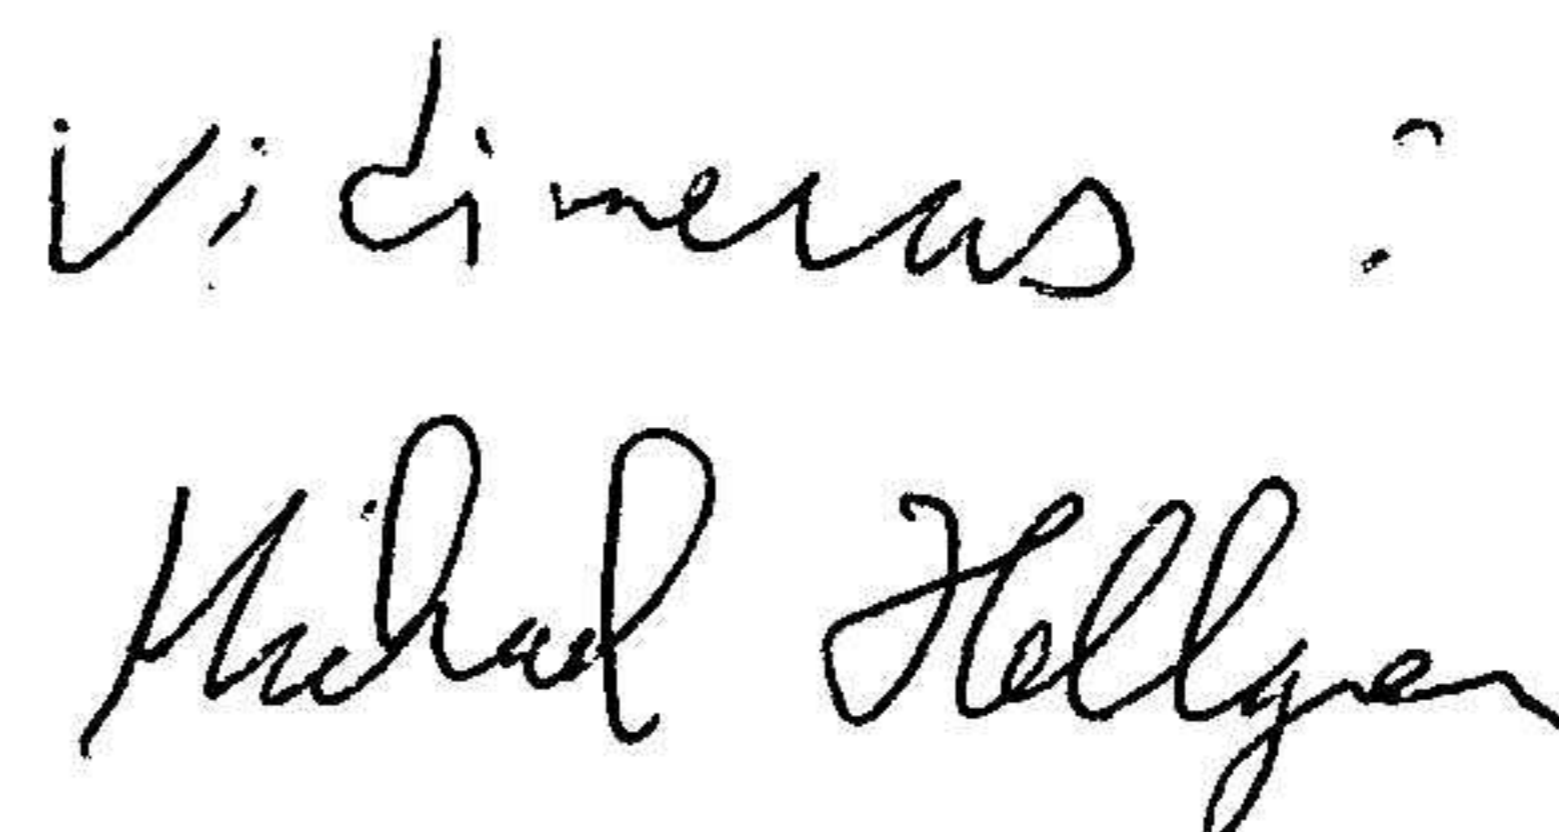 Vidimeras :
Michael Hellgren